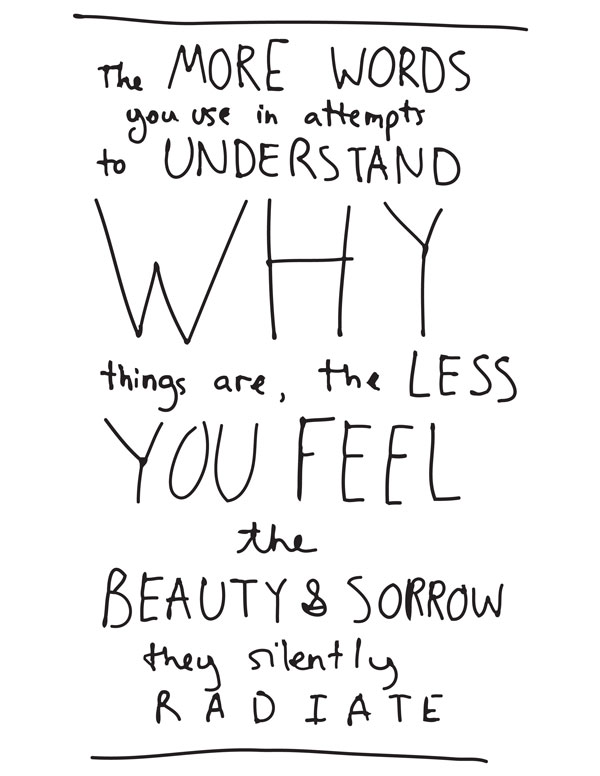 The MORE WORDS
you use in attempts
to UNDERSTAND
WHY
things are, the LESS
YOU FEEL
the
BEAUTY & SORROW
they silently
RADIATE